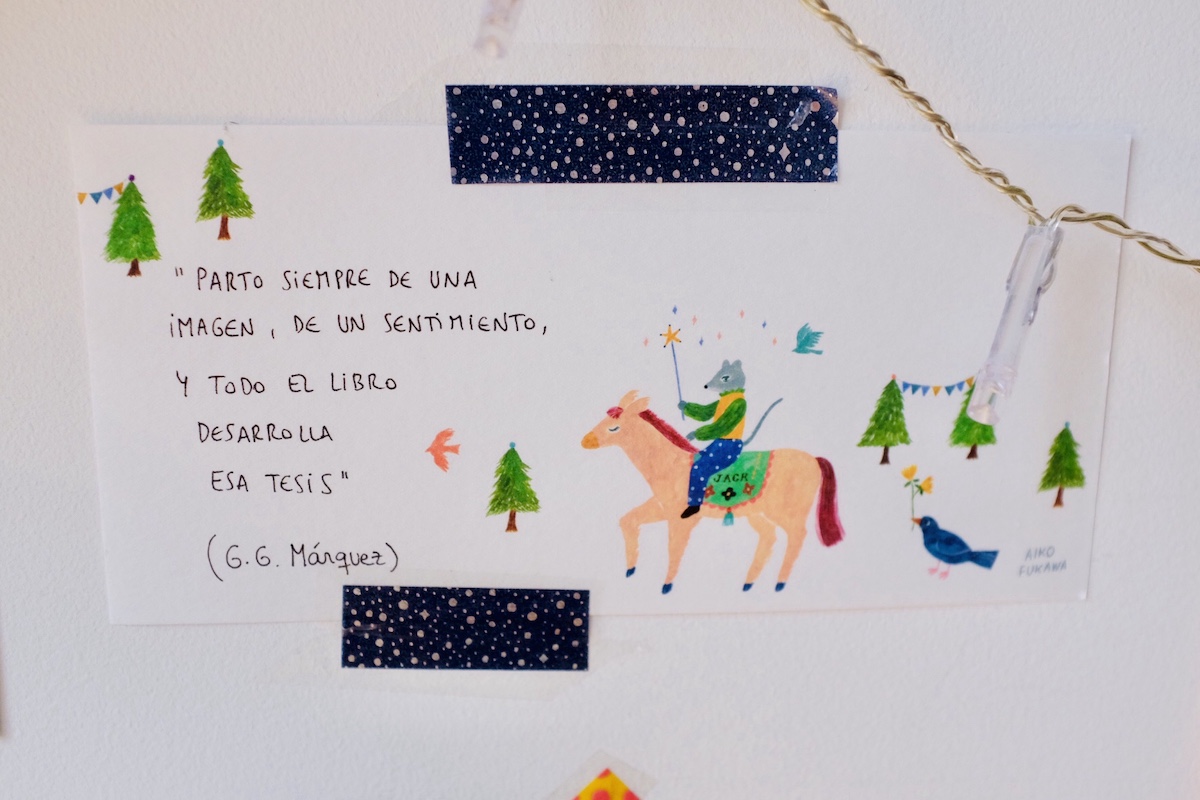 "PARTO SIEMPRE DE UNA
IMAGEN, DE UN SENTIMIENTO,
Y TODO EL LIBRO
DESARROLLA
ESA TESIS"
(G.G. Márquez)
JACK
AIKO
FUKAWA